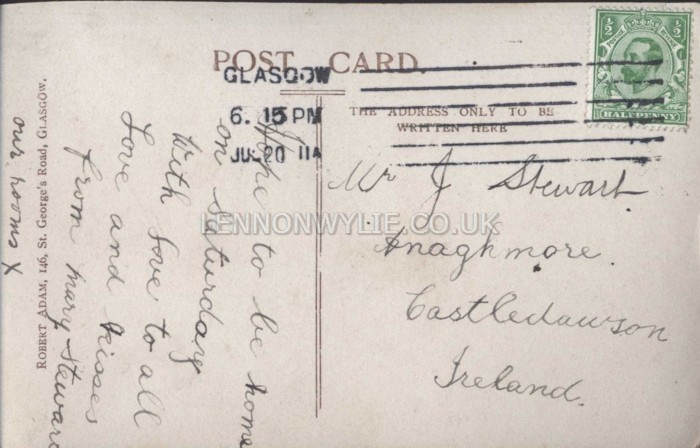 POST CARD.
GLASGOW
6. 15 PM
JU 20 11A
½ ½
POSTAGE REVENUE
HALFPENNY
THE ADDRESS ONLY TO BE
WRITTEN HERE
Mr J Stewart
Anaghmore
Castledawson
Ireland.
Hope to be home
on Saturday
With love to all
Love and kisses
from Mary Stewart
our rooms X
ROBERT ADAM, 146, St. GEORGE'S ROAD, GLASGOW.
LENNONWYLIE.CO.UK